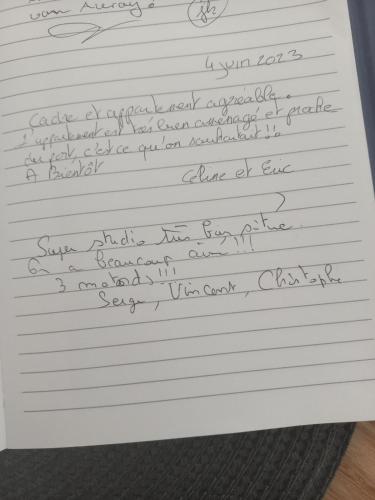 4 juin 2023
Cadre et appartement agréable.
L'appartement est très bien aménagé et proche
du port, c'est ce qu'on souhaitait !!
A Bientôt
Céline et Eric
Super studio très bien située
On a beaucoup aimé !!!
3 motards !!!
Serge, Vincent, Christophe